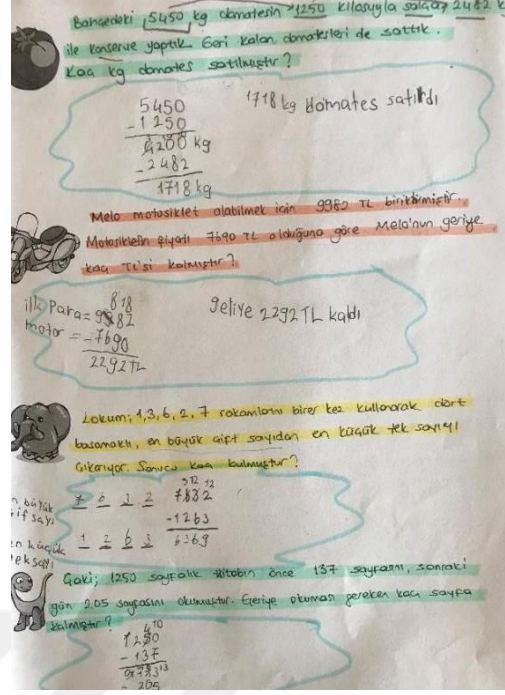 Bahçedeki 5450 kg domatesin 1250 kilosuyla salça, 2482 k
ile konserve yaptık. Geri kalan domatesleri de sattık.
Kaç kg domates satılmıştır?
5450
-1250
4200 kg
-2482
1718 kg
1718 kg domates satıldı
Melo motosiklet alabilmek için 9982 TL biriktirmiştir.
Motosikletin fiyatı 7690 TL olduğuna göre Melo'nun geriye
kaç TL'si kalmıştır?
8 18
ilk Para= 9982
motor = -7690
2292 TL
geriye 2292 TL kaldı
Lokum; 1,3,6,2,7 rakamlarını birer kez kullanarak dört
basamaklı, en büyük çift sayıdan en küçük tek sayıyı
çıkarıyor. Sonucu kaç bulmuştur?
n büyük
if sayı
7 6 3 2
en küçük
tek sayı
1 2 6 3
5 12 12
7632
-1263
6369
Gaki; 1250 sayfalık kitabın önce 137 sayfasını, sonraki
gün 205 sayfasını okumuştur. Geriye okuması gereken kaç sayfa
kalmıştır?
4 10
1250
- 137
- 205